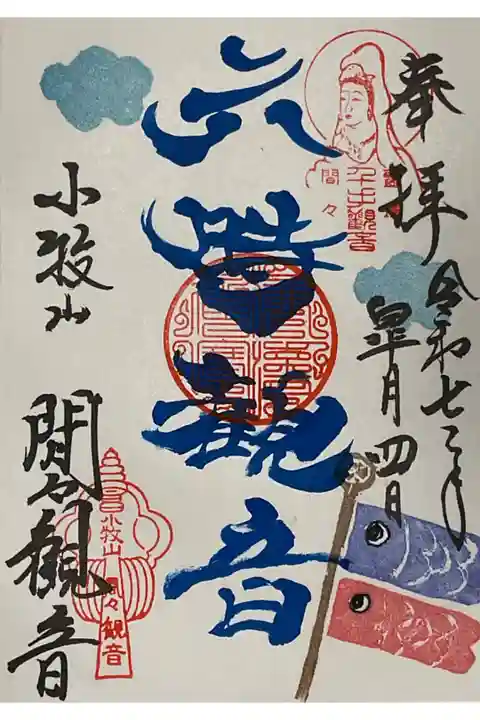 奉拝
令和七年
皐月四日
千手観音
間々
六時観音
小牧山
間々観音
小牧山
間々観音